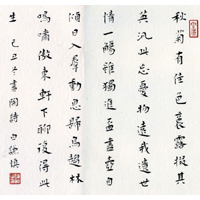 秋菊有佳色裛露掇其
英汎此忘憂物遠我遺世
情一觴雖獨進盃盡壺自
傾日入羣動息歸鳥趨林
鳴嘯傲東軒下聊復得此
生 己丑年書陶詩白謙慎